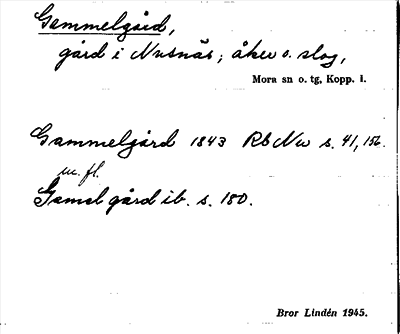 Gammelgård,
gård i Nusnäs; åker o. slog,
Mora sn o. tg, Kopp. l.
Gammelgård 1843 Rb Nu s. 41, 156.
m. fl.
Gamal gård ib. s. 180.
Bror Lindén 1945.